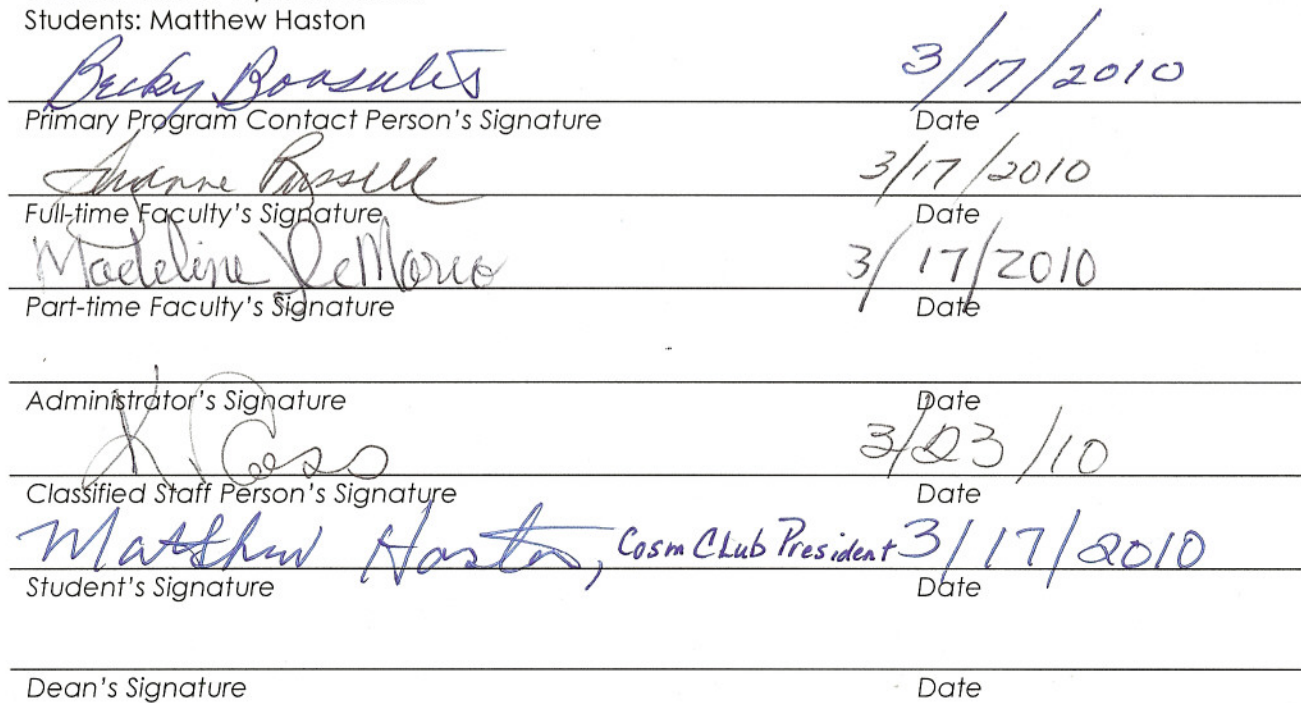 Students: Matthew Haston
Becky 3/17/2010
Primary Program Contact Person's Signature Date
Russell 3/17/2010
Full-time Faculty's Signature Date
Madeline DeMarco 3/17/2010
Part-time Faculty's Signature Date
Administrator's Signature Date
K. 3/23/10
Classified Staff Person's Signature Date
Matthew Haston, Cosm Club President 3/17/2010
Student's Signature Date
Dean's Signature Date